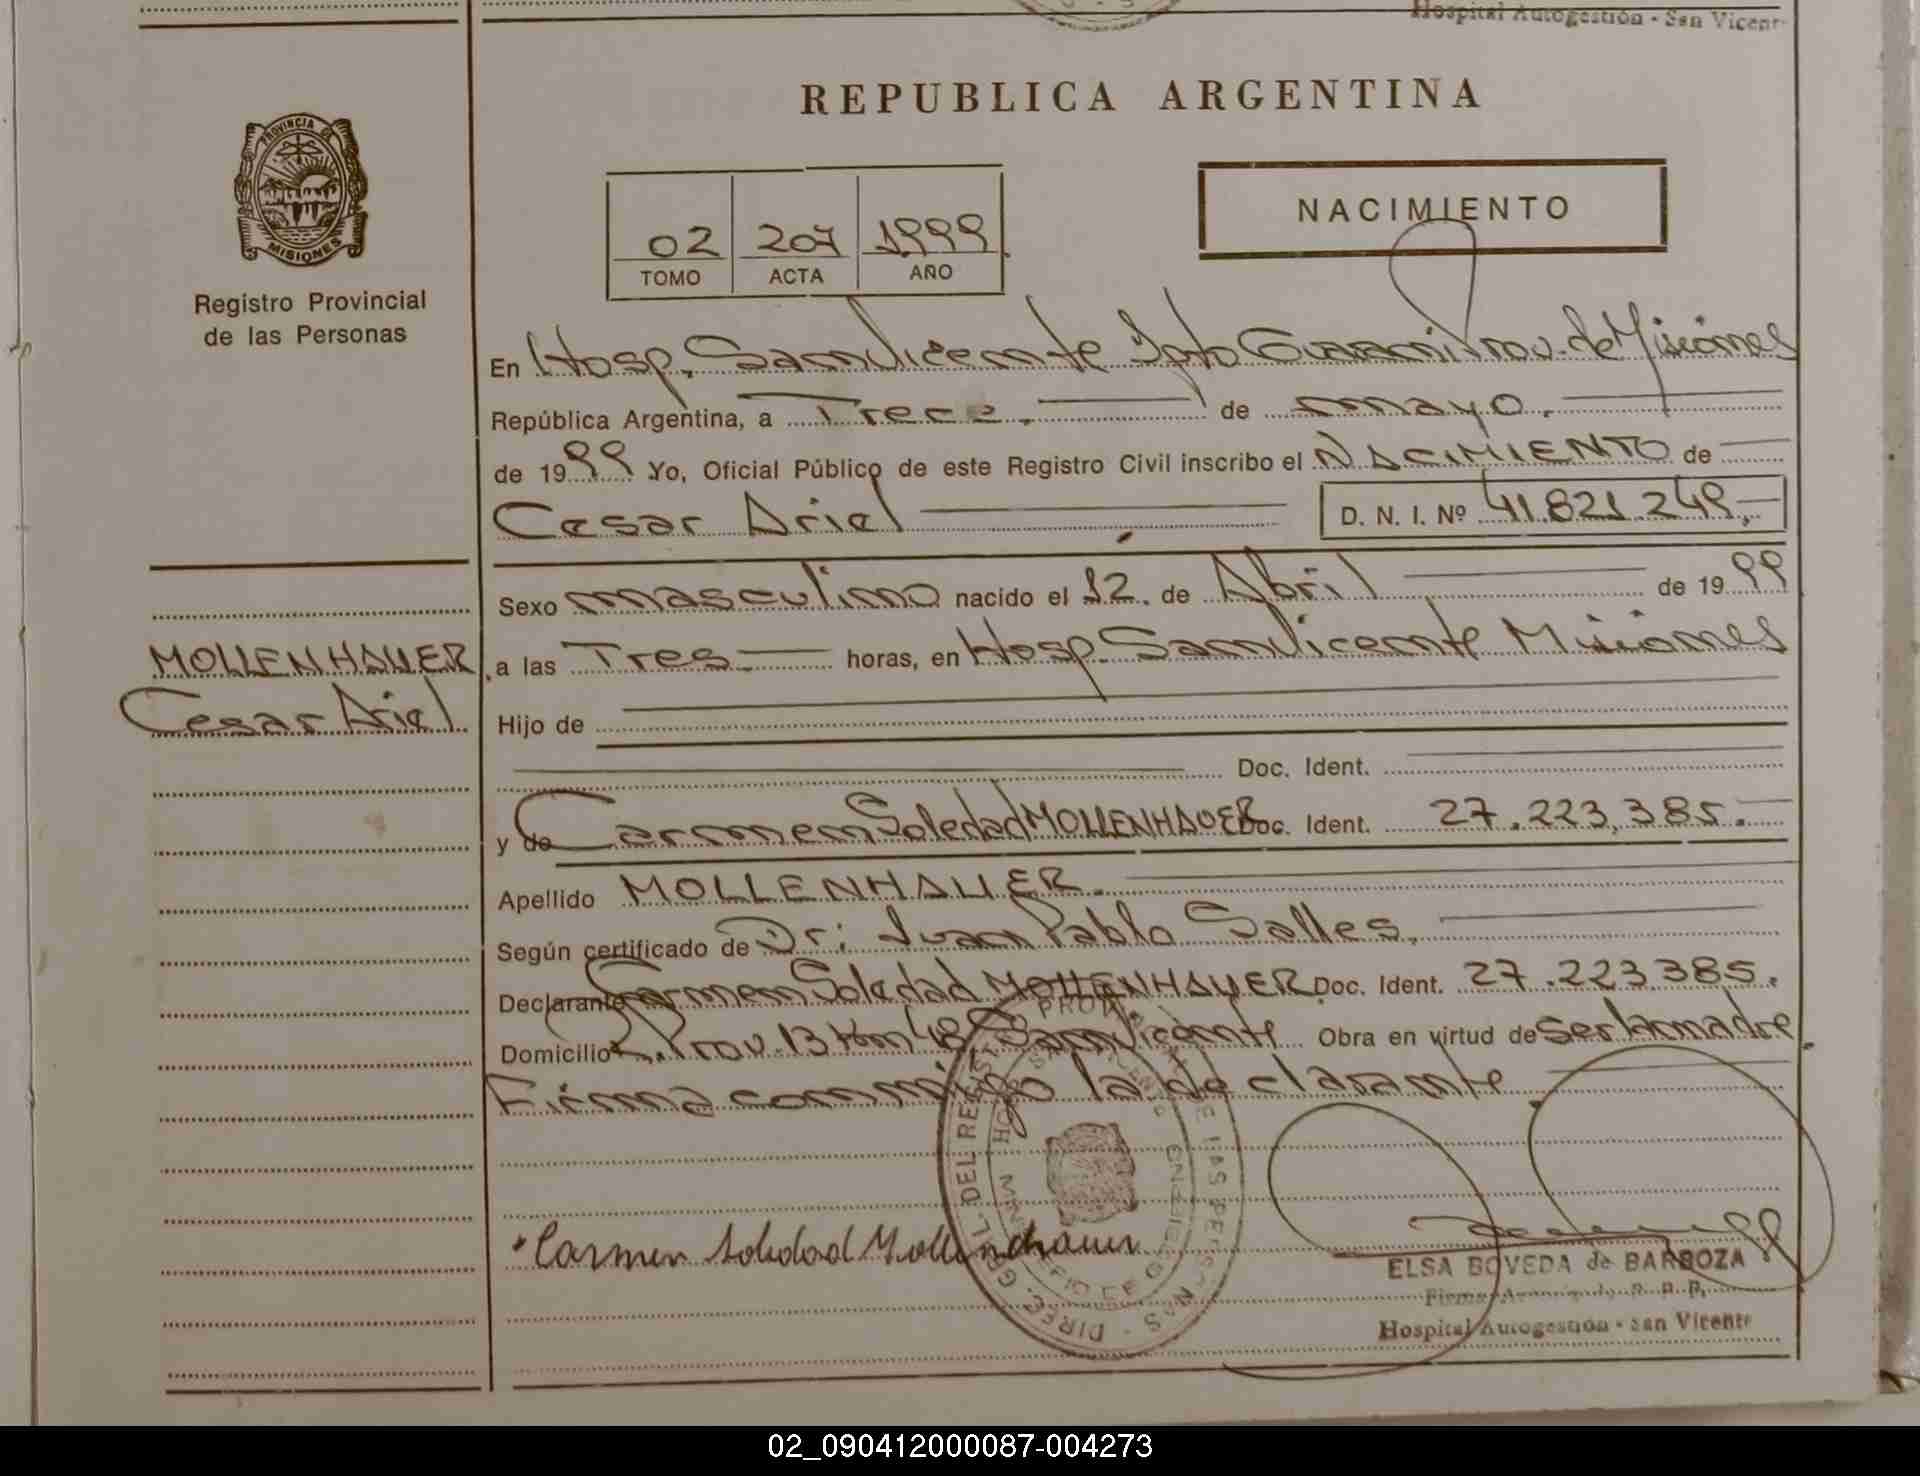 Hospital Autogestión - San Vicente
REPUBLICA ARGENTINA
PROVINCIA DE
MISIONES
Registro Provincial
de las Personas
02 207 1999
TOMO ACTA AÑO
NACIMIENTO
En Hosp. San Vicente Dpto Guarani Prov. de Misiones
República Argentina, a Trece. de mayo.
de 1999 Yo, Oficial Público de este Registro Civil inscribo el NACIMIENTO de
Cesar Ariel D. N. I. Nº 41.821.249,-
Sexo masculino nacido el 12. de Abril de 1999
MOLLENHAUER
Cesar Ariel
a las Tres horas, en Hosp. San Vicente Misiones
Hijo de
Doc. Ident.
y de Carmen Soledad MOLLENHAUER Doc. Ident. 27.223.385.
Apellido MOLLENHAUER.
Según certificado de Dr: Juan Pablo Salles.
Declarante Carmen Soledad MOLLENHAUER Doc. Ident. 27.223 385.
Domicilio R. Prov. 13 Km 48 San Vicente Obra en virtud de Ser la madre.
Firma conmigo la declarante.
Carmen Soledad Mollenhauer
ELSA BOVEDA de BARBOZA
Hospital Autogestión - San Vicente
02_090412000087-004273